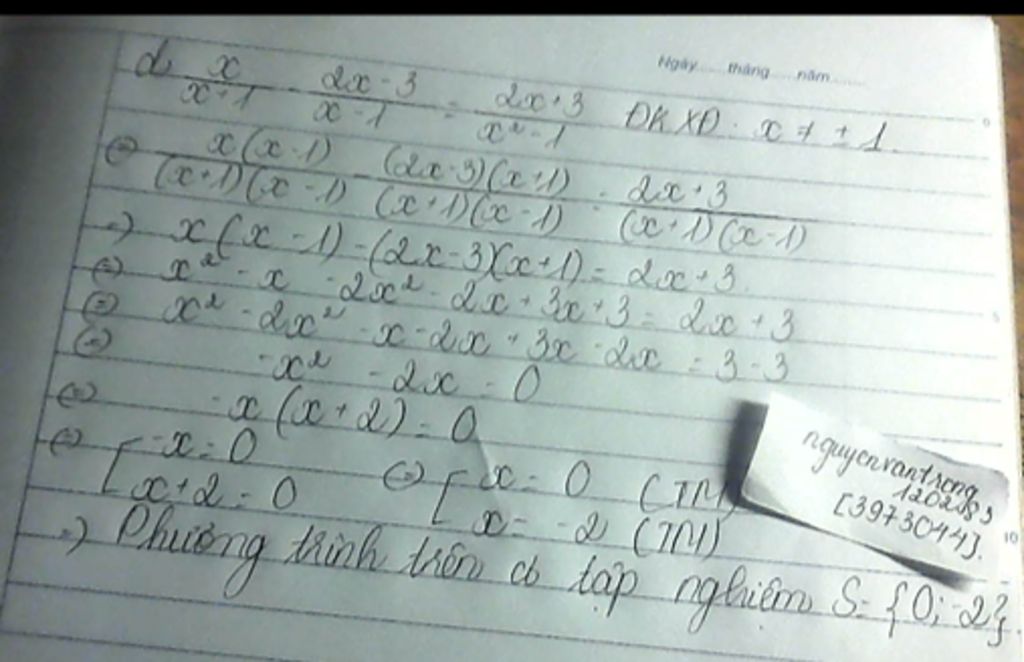 Ngày......tháng......năm......
d, x/(x+1) - (2x-3)/(x-1) = (2x+3)/(x²-1) ĐKXĐ: x ≠ ±1.
(=) x(x-1)/((x+1)(x-1)) - (2x-3)(x+1)/((x+1)(x-1)) = (2x+3)/((x+1)(x-1))
=) x(x-1)-(2x-3)(x+1) = 2x+3.
(=) x² - x - 2x² - 2x + 3x + 3 = 2x + 3
(=) x² - 2x² - x - 2x + 3x - 2x = 3 - 3
(=) -x² - 2x = 0
(=) -x(x+2) = 0
(=) [-x = 0 (=) [x = 0 (TM)
[x+2 = 0 [x = -2 (TM)
=) Phương trình trên có tập nghiệm S = {0; -2}.
nguyenvantrong
[3973044].
5
10